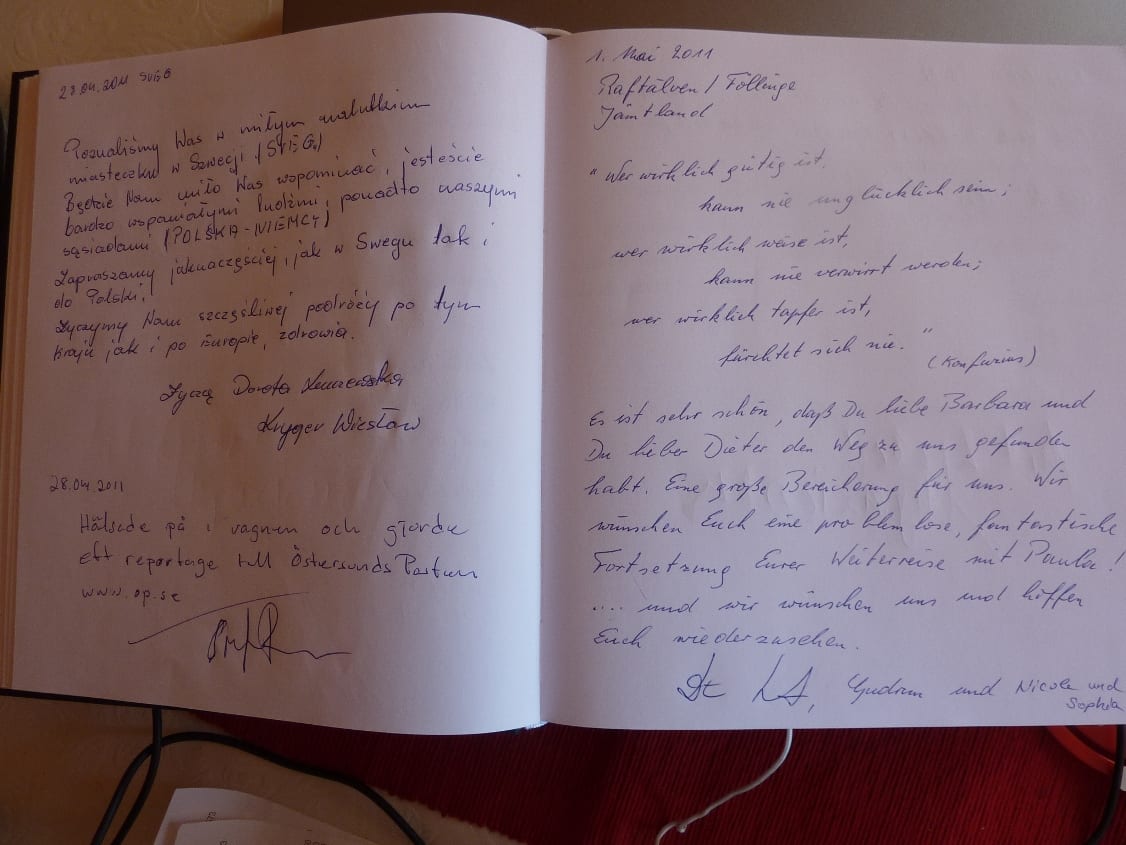 28.04.2011 SVEG
Poznaliśmy Was w miłym malutkim
miasteczku w Szwecji (SVEG)
Będzie Nam miło Was wspominać, jesteście
bardzo wspaniałymi ludźmi, ponadto naszymi
sąsiadami (POLSKA - NIEMCY)
Zapraszamy jaknaczęściej, jak w Swegu tak i
do Polski!
Życzymy Nam szczęśliwej podróży po tym
kraju jak i po Europie, zdrowia.
Życzą Dorota
Kryger Wiesław
28.04.2011
Hälsade på i vagnen och gjorde
ett reportage till Östersunds Posten
www.op.se
1. Mai 2011
Raftälven / Föllinge
Jämtland
"Wer wirklich gütig ist,
kann nie unglücklich sein;
wer wirklich weise ist,
kann nie verwirrt werden;
wer wirklich tapfer ist,
fürchtet sich nie."
(Konfuzius)
Es ist sehr schön, daß Du liebe Barbara und
Du lieber Dieter den Weg zu uns gefunden
habt. Eine große Bereicherung für uns. Wir
wünschen Euch eine problemlose, fantastische
Fortsetzung Eurer Weiterreise mit Paula!
.... und wir wünschen uns und hoffen
Euch wiederzusehen.
Gudrun und Nicole und
Sophia